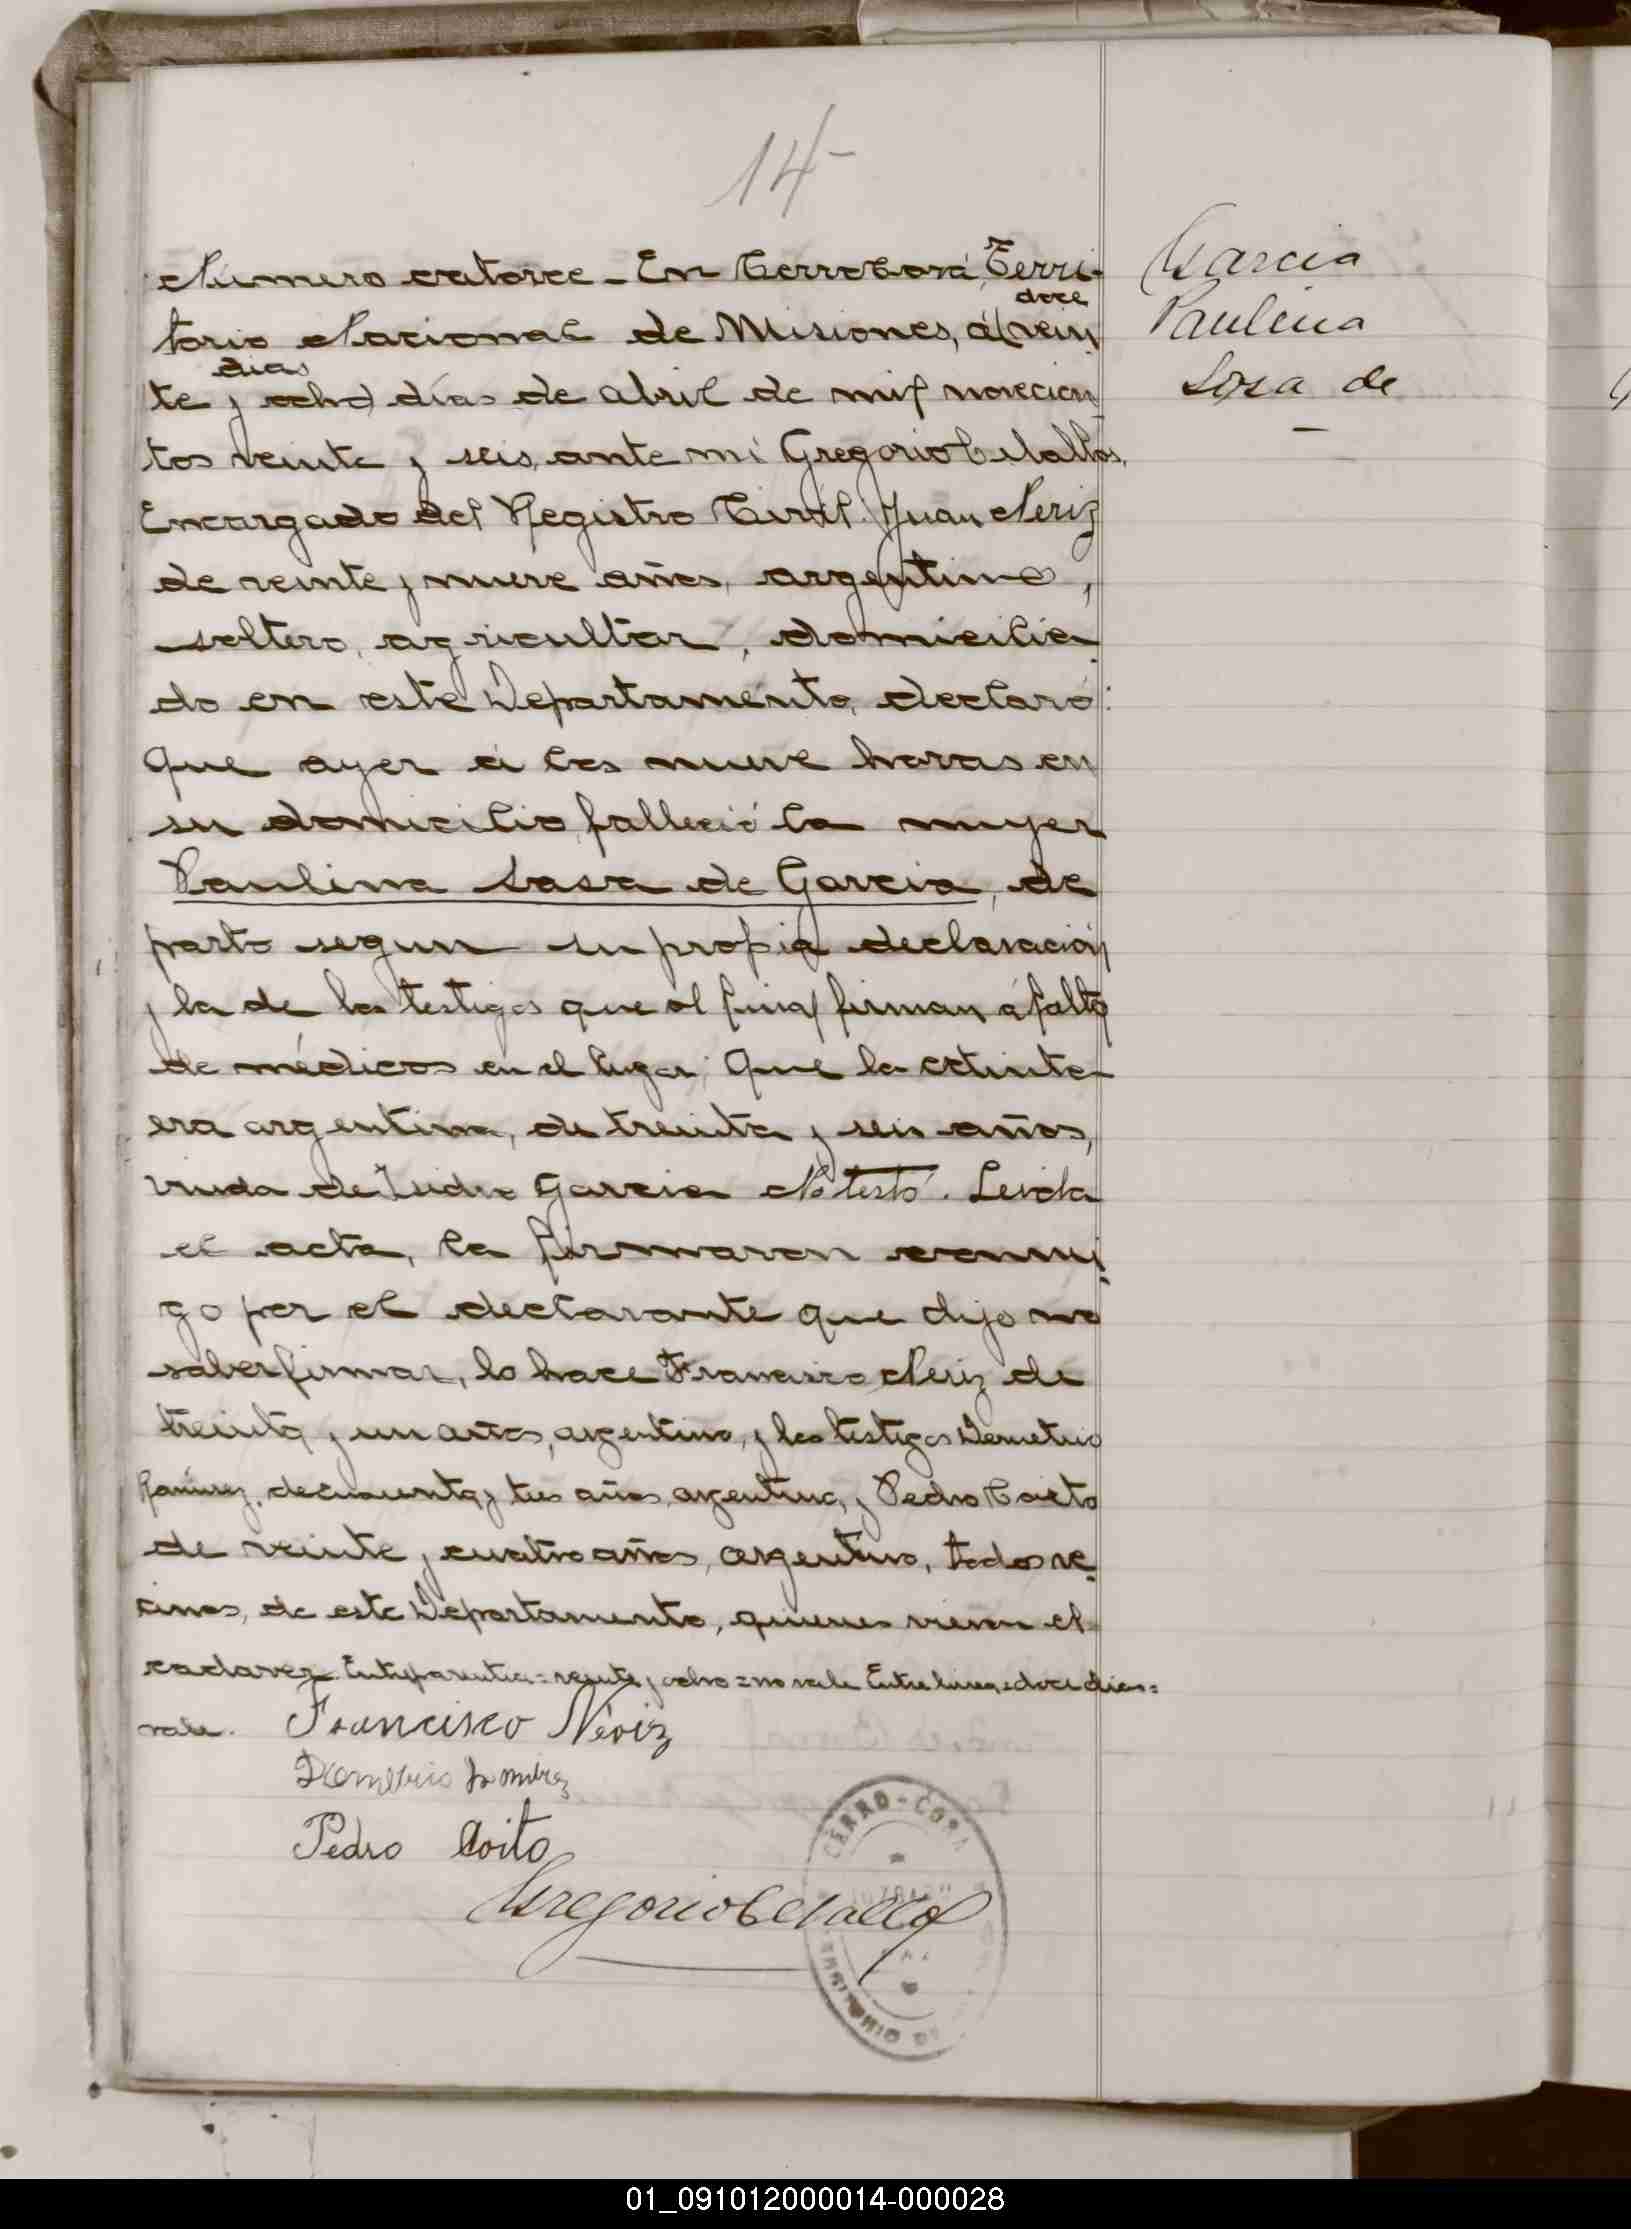 14-
Garcia
Paulina
Sosa de
Número catorce - En Cerro Corá, Terri-
doce
torio Nacional de Misiones, á (vein
dias
te y ocho) días de abril de mil novecien
tos veinte y seis, ante mi Gregorio Cevallos,
Encargado del Registro Civil: Juan Neriz
de veinte y nueve años, argentino,
soltero, agricultor, domicilia-
do en este Departamento, declaró:
Que ayer á las nueve horas en
su domicilio, falleció la mujer
Paulina Sosa de Garcia, de
parto segun su propia declaración
y la de los testigos que al final firman á falta
de médicos en el lugar; Que la extinta
era argentina, de treinta y seis años,
viuda de Isidro Garcia No testó. Leida
el acta, la firmaron conmi-
go por el declarante que dijo no
saber firmar, lo hace Francisco Neriz de
treinta y un años, argentino, y los testigos Demetrio
Ramirez, de cincuenta y tres años, argentino, y Pedro Coito
de veinte y cuatro años, argentino, todos ve-
cinos, de este Departamento, quienes vieron el
cadaver. Entreparentesis = veinte y ocho = no vale Entre lineas = doce dias =
vale. Francisco Nériz
Demetrio Ramirez
Pedro Coito
Gregorio Cevallos
CERRO-CORA
01_091012000014-000028